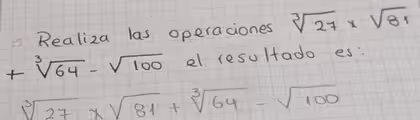 Realiza las operaciones ∛27 x √81
+ ∛64 - √100 el resultado es:
∛27 x √81 + ∛64 - √100